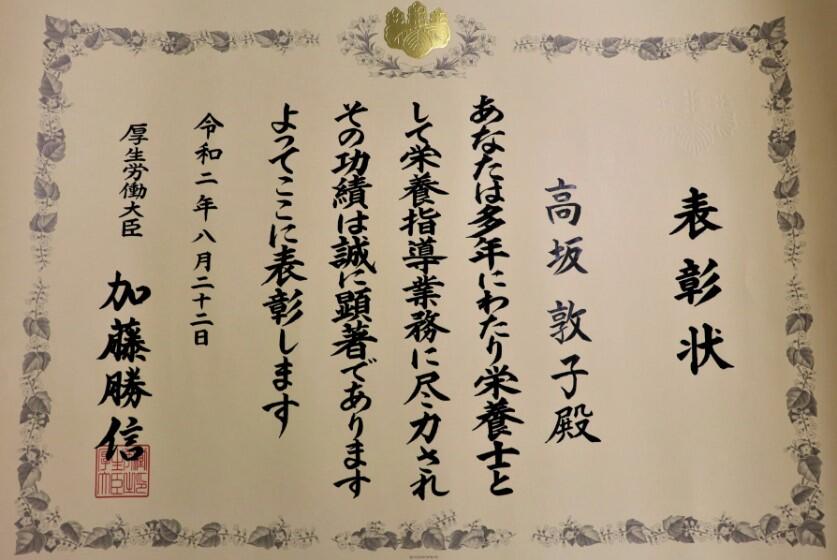 表彰状
高坂敦子殿
あなたは多年にわたり栄養士と
して栄養指導業務に尽力され
その功績は誠に顕著であります
よってここに表彰します
令和二年八月二十二日
厚生労働大臣 加藤勝信